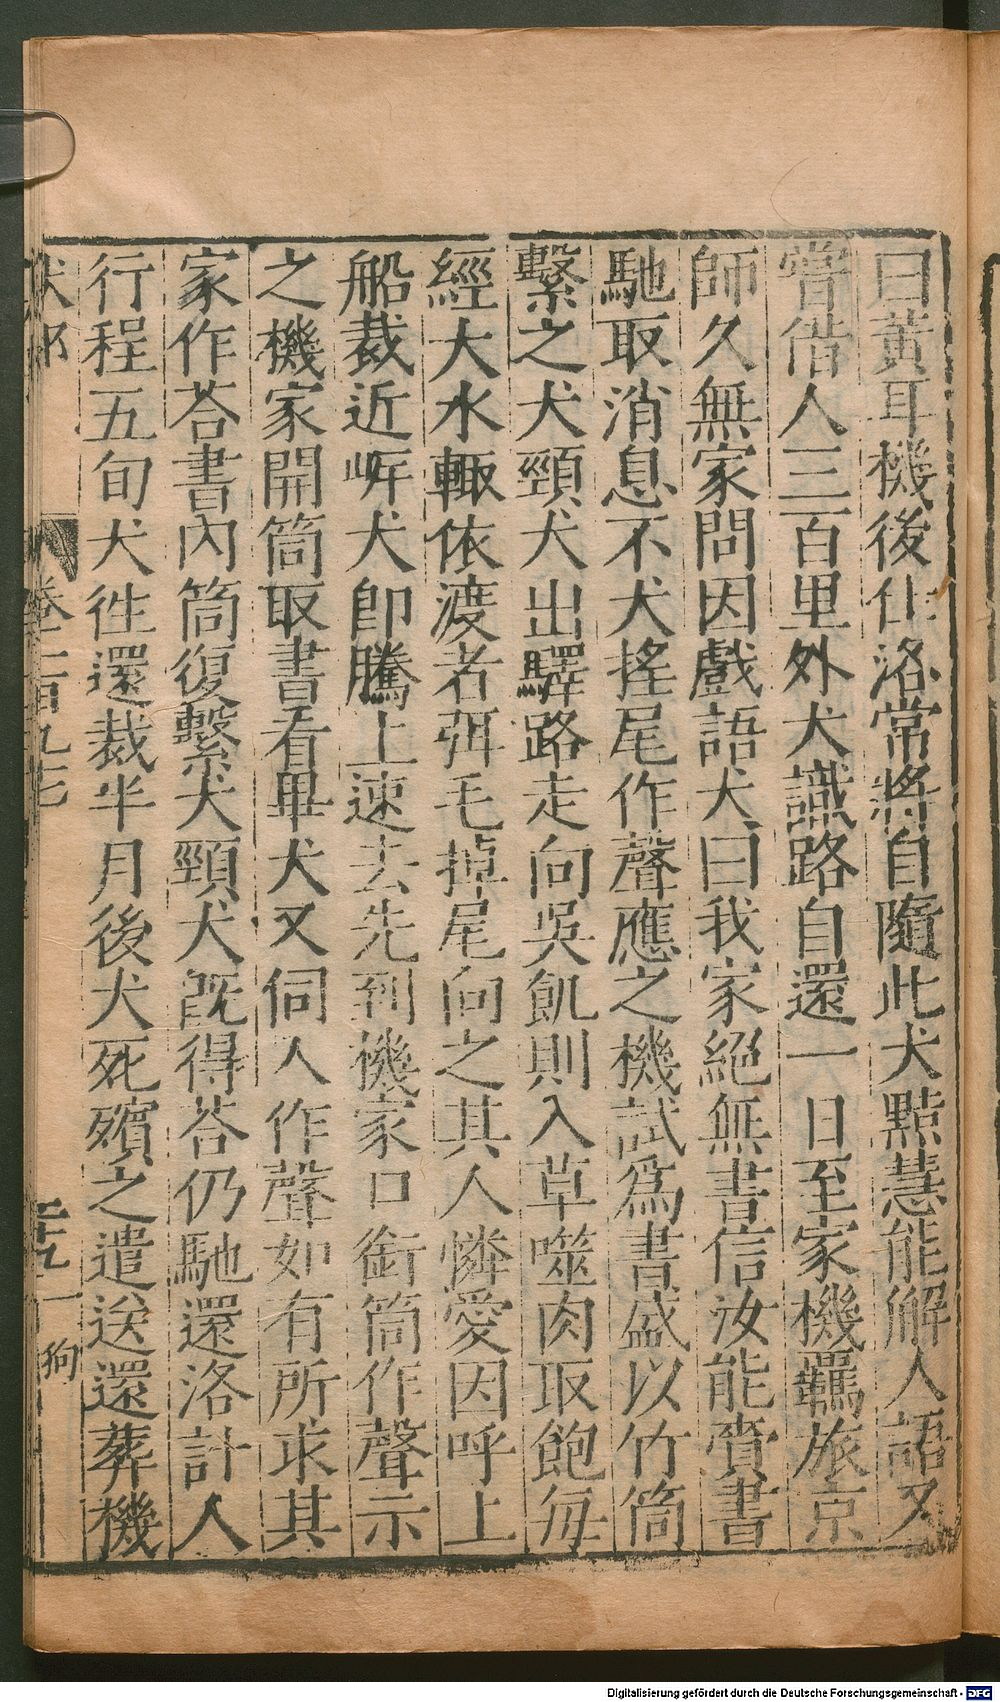 曰黃耳機後仕洛常將自隨此犬黠慧能解人語又
嘗借人三百里外犬識路自還一日至家機羈旅京
師久無家問因戲語犬曰我家絕無書信汝能賫書
馳取消息不犬搖尾作聲應之機試爲書盛以竹筒
繫之犬頸犬出驛路走向吳飢則入草噬肉取飽每
經大水輙依渡者弭毛掉尾向之其人憐愛因呼上
船裁近岍犬卽騰上速去先到機家口銜筒作聲示
之機家開筒取書看畢犬又伺人作聲如有所求其
家作荅書內筒復繫犬頸犬旣得荅仍馳還洛計人
行程五旬犬徃還裁半月後犬死殯之遣送還葬機
犬部
卷二百九七
二十九
狗
Digitalisierung gefördert durch die Deutsche Forschungsgemeinschaft - DFG